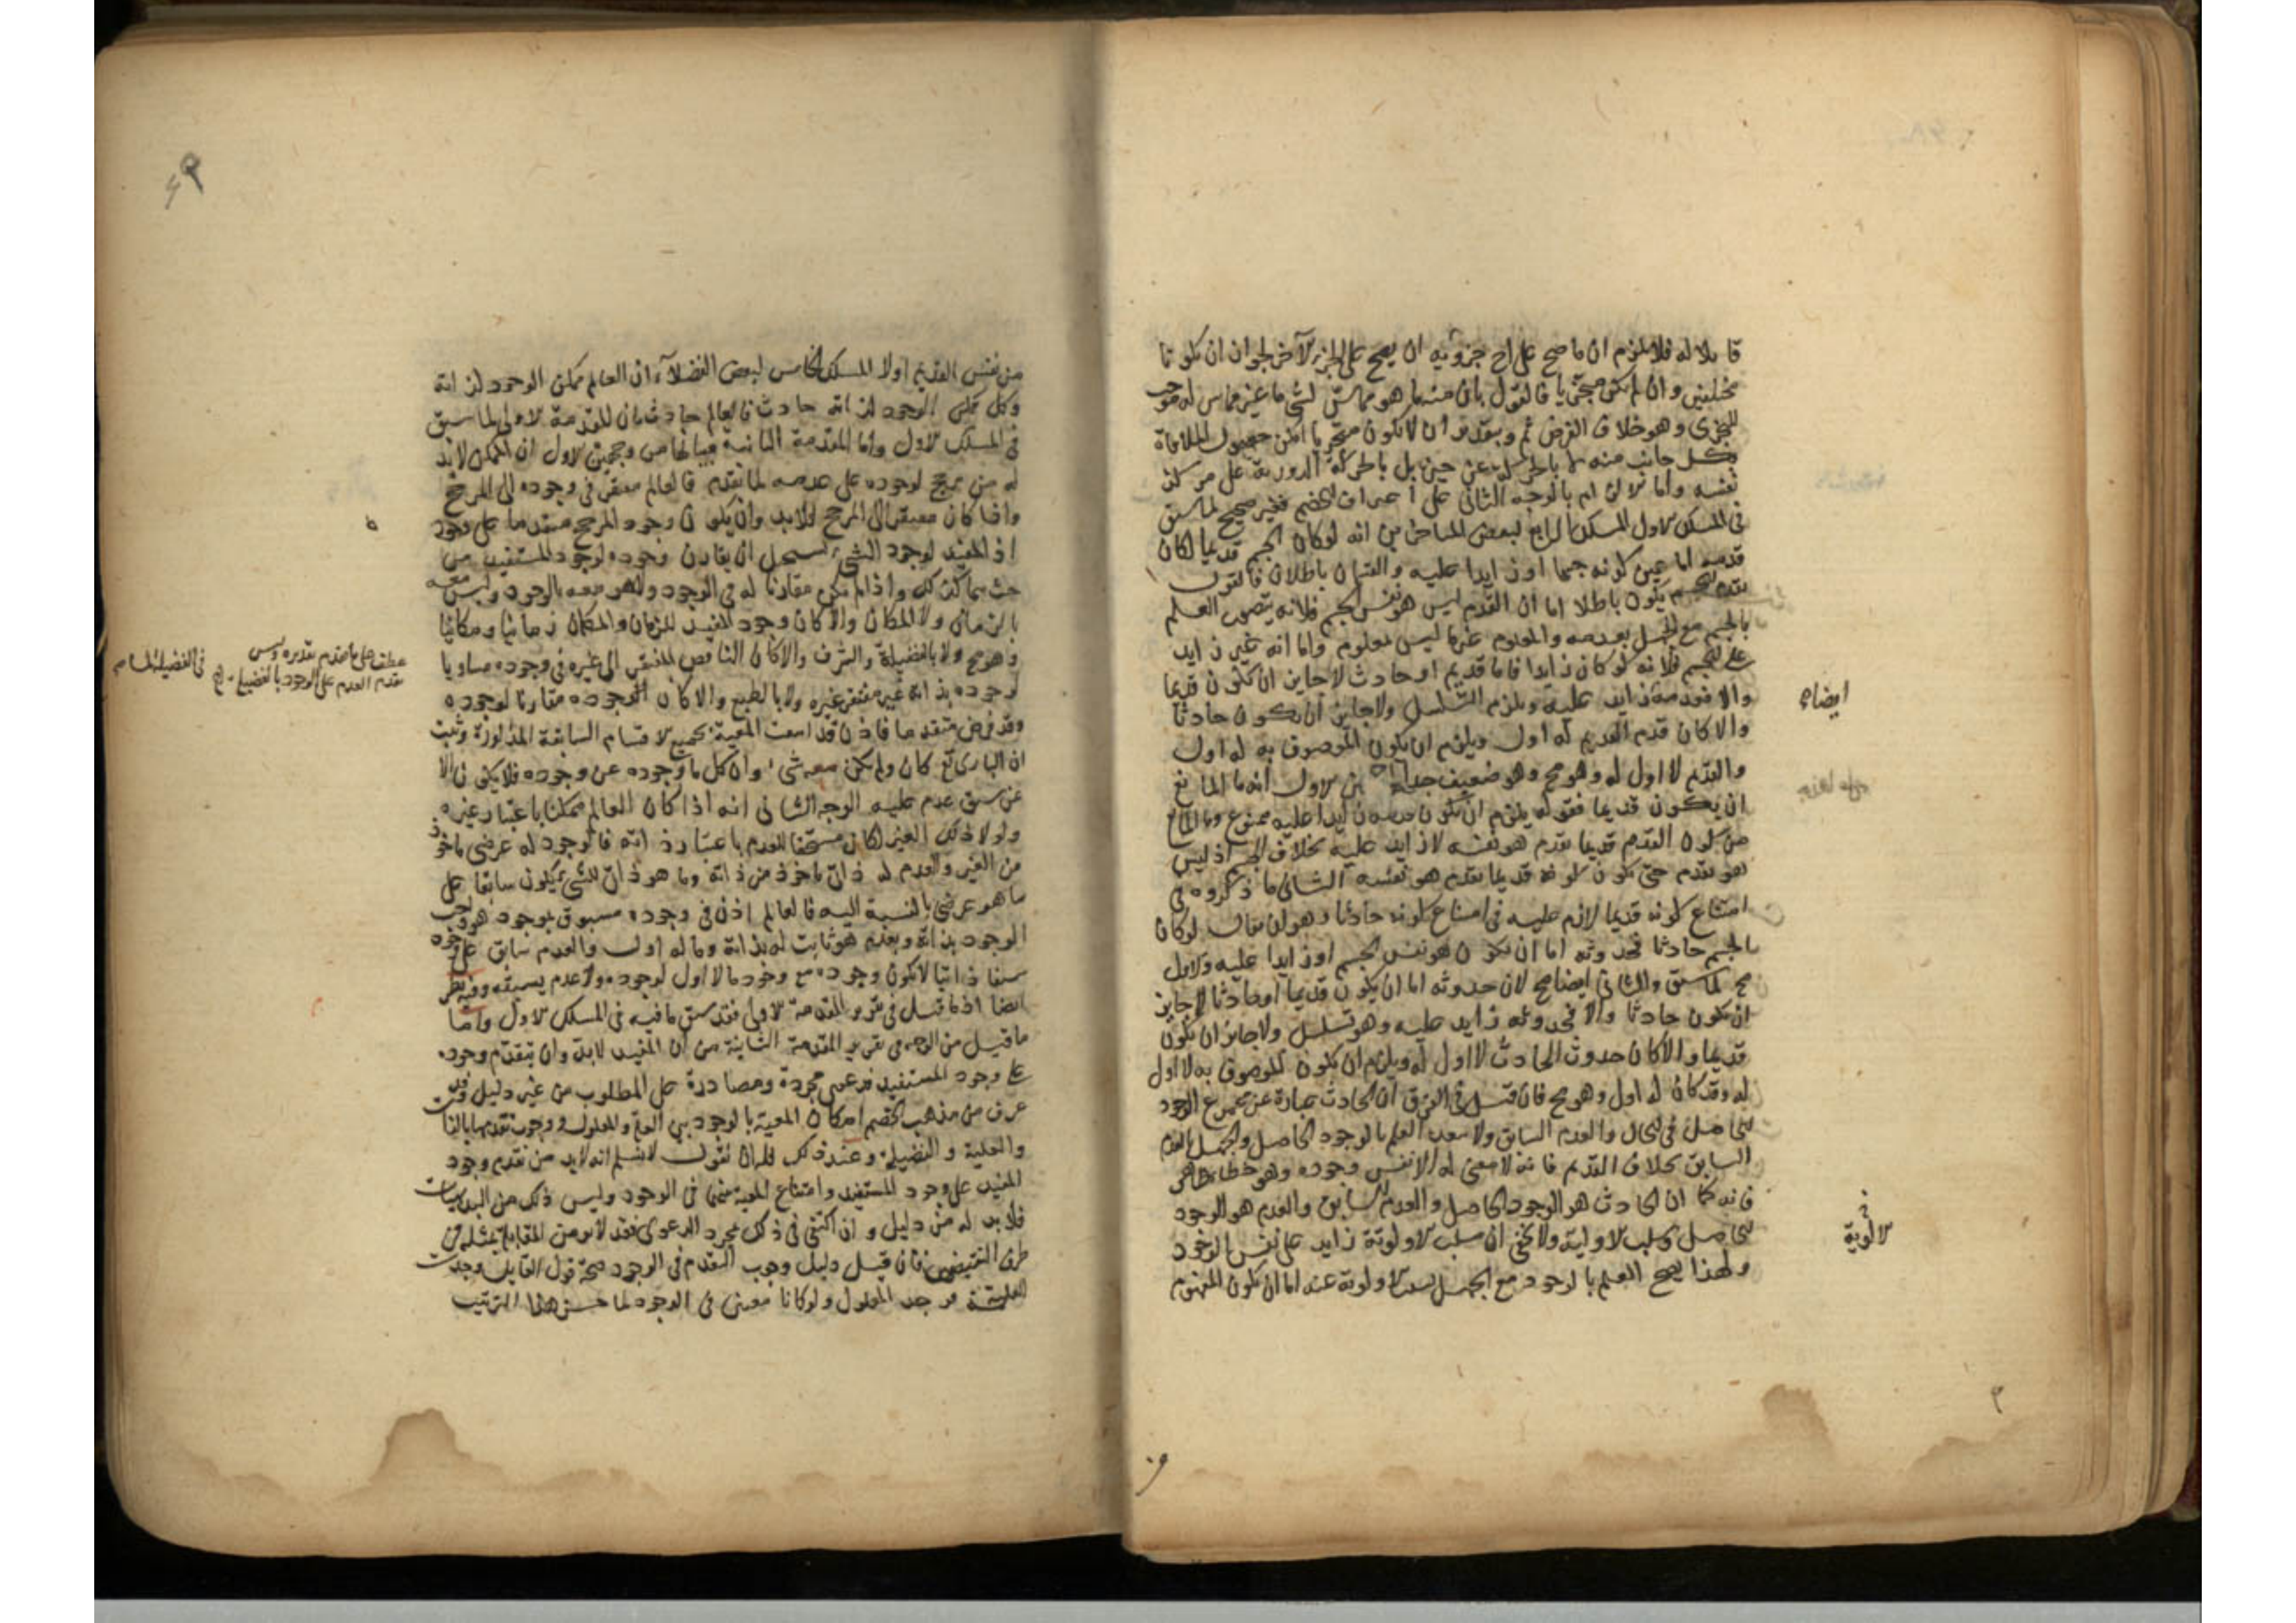 قابلا له فلا يلزم ان ما صح على احد جزويه ان يصح على الجزء الآخر لجواز ان يكونا
مختلفين وان لم يكن متجزيا فالقول بان منه ما هو مماس لشى ما غير مماس له موجب
للتجزى وهو خلاف الفرض ثم وبتقدير ان لا يكون متجزيا امكن حصول الملاقاة
بكل جانب منه لا بالحركة عن حيزه بل بالحركة الدورية على مركز
نفسه واما الالزام بالوجه الثانى على اعتراف الخصم فغير صحيح لما سبق
فى المسلك الاول المسلك الرابع لبعض المتاخرين انه لو كان الجسم قديما لكان
قدمه اما عين كونه جسما او زايدا عليه والقسمان باطلان فالقول
بقدم الجسم يكون باطلا اما ان القدم ليس هو نفس الجسم فلانه يتصور العلم
بالجسم مع الجهل بقدمه والمعلوم غير ما ليس بمعلوم واما انه غير زايد
على الجسم فلانه لو كان زايدا فاما قديم او حادث لا جايز ان يكون قديما
والا فقدمه زايد عليه ويلزم التسلسل ولا جايز ان يكون حادثا
والا كان قدم القديم له اول ويلزم ان يكون الموصوف به له اول
والقدم لا اول له وهو مح وهو ضعيف جدا الاول انه ما المانع
ان يكون قديما فقوله يلزم ان يكون قدمه زايدا عليه ممنوع وما المانع
من كون القدم قديما بقدم هو نفسه لا زايد عليه بخلاف الجسم اذ ليس
هو بقدم حتى يكون كونه قديما بقدم هو نفسه الثانى ما ذكروه فى
امتناع كونه قديما لازم عليه فى امتناع كونه حادثا وهو ان يقال لو كان
الجسم حادثا فحدوثه اما ان يكون هو نفس الجسم او زايدا عليه والاول
مح لما سبق والثانى ايضا مح لان حدوثه اما ان يكون قديما او حادثا لا جايز
ان يكون حادثا والا فحدوثه زايد عليه وهو تسلسل ولا جايز ان يكون
قديما والا كان حدوث الحادث لا اول له ويلزم ان يكون الموصوف به لا اول
له وقد كان له اول وهو مح فان قيل فى الفرق ان الحادث عبارة عن مجموع الوجود
الحاصل فى الحال والعدم السابق ولا يبعد العلم بالوجود الحاصل والجهل بالعدم
السابق بخلاف القديم فانه لا معنى له الا نفس وجوده وهو خطا ظاهر
فانه كما ان الحادث هو الوجود الحاصل والعدم السابق والقدم هو الوجود
الحاصل وسلب الاولية ولا يخفى ان سلب الاولوية زايد على نفس الوجود
ولهذا يصح العلم بالوجود مع الجهل بسلب الاولوية عنه اما ان يكون المفهوم
ايضا
الاولوية
من نفس القديم اولا المسلك الخامس لبعض الفضلاء ان العالم ممكن الوجود لذاته
وكل ممكن الوجود لذاته حادث فالعالم حادث بيان المقدمة الاولى لما سبق
فى المسلك الاول واما المقدمة الثانية فبيانها من وجهين الاول ان الممكن لابد
له من مرجح لوجوده على عدمه لما تقدم فالعالم مفتقر فى وجوده الى المرجح
واذا كان مفتقرا الى المرجح فلابد وان يكون وجود المرجح متقدما على وجوده
اذ المفيد لوجود الشى يستحيل ان يقارن وجوده لوجود المستفيد من
حيث هما كذلك واذا لم يكن مقارنا له فى الوجود وليس معه
بالزمان ولا المكان والا كان وجود المفيد للزمان والمكان زمانيا ومكانيا
وهو مح ولا بالفضيلة والشرف والا كان الناقص المفتقر الى غيره فى وجوده مساويا
لوجوده بذاته غير مفتقر لغيره ولا بالطبع والا كان وجوده مقارنا لوجوده
وقد فرض متقدما فاذن قد امتنعت المعية بجميع الاقسام السابقة المذكورة وثبت
ان البارى تع كان ولم يكن معه شى وان كل ما وجوده عن وجوده فلا يكون الا
عن سبق عدم عليه الوجه الثانى انه اذا كان العالم ممكنا باعتبار غيره
ولولا ذلك الغير لكان مستحقا للعدم باعتبار ذاته فالوجود له عرضى ماخوذ
من الغير والعدم له ذاتى ماخوذ من ذاته وما هو ذاتى للشى يكون سابقا على
ما هو عرضى بالنسبة اليه فالعالم اذن فى وجوده مسبوق بوجود هو واجب
الوجود بذاته وبعدم هو ثابت له بذاته وما له اول والعدم سابق على وجوده
سبقا ذاتيا لا يكون وجوده مع وجود ما لا اول لوجوده ولا عدم يسبقه وفيه نظر
ايضا اذ ما قيل فى تقرير المقدمة الاولى فقد سبق ما فيه فى المسلك الاول واما
ما قيل من الوجه فى تقرير المقدمة الثانية من ان المفيد لابد وان يتقدم وجوده
على وجود المستفيد فدعوى مجردة ومصادرة على المطلوب من غير دليل وقد
عرف من مذهب الخصم امكان المعية بالوجود بين العلة والمعلول ووجوب تقدمها بالذات
والعلية والفضيلة وعند ذلك فله ان يقول لا نسلم انه لابد من تقدم وجود
المفيد على وجود المستفيد وامتناع المعية بينهما فى الوجود وليس ذلك من البديهيات
فلابد له من دليل وان اكتفى فى ذلك بمجرد الدعوى فقد لا يومن المقابلة بمثله من
طرف النقيض فان قيل دليل وجوب التقدم فى الوجود صحة قول القايل وجدت
العلة فوجد المعلول ولو كانا معين فى الوجود لما حسن هذا الترتيب
عطف على ما تقدم تقديره وليس
تقدم العدم على الوجود بالفضيلة